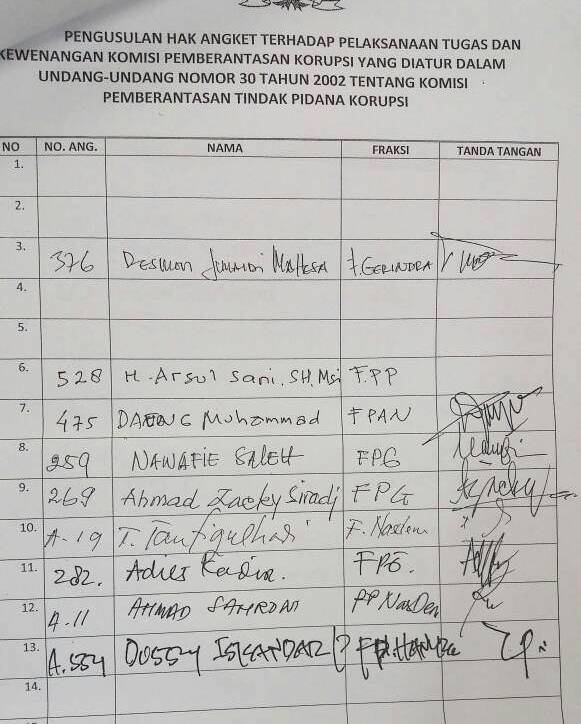 PENGUSULAN HAK ANGKET TERHADAP PELAKSANAAN TUGAS DAN
KEWENANGAN KOMISI PEMBERANTASAN KORUPSI YANG DIATUR DALAM
UNDANG-UNDANG NOMOR 30 TAHUN 2002 TENTANG KOMISI
PEMBERANTASAN TINDAK PIDANA KORUPSI
NO NO. ANG. NAMA FRAKSI TANDA TANGAN
1.
2.
3. 376 DESMON JUNAIDI MAHESA F. GERINDRA
4.
5.
6. 528 H. Arsul Sani. SH. Msi F.PP
7. 475 DAENG Muhammad FPAN
8. 259 NAWAFIE SALEH FPG
9. 269 Ahmad Zacky Siradj FPG
10. A-19 T. Taufiqulhadi F. Nasdem
11. 282. Adies Kadir. FPG.
12. A.11 AHMAD SAHRONI FP NasDem
13. A.554 DOSSY ISKANDAR P FP. HANURA
14.